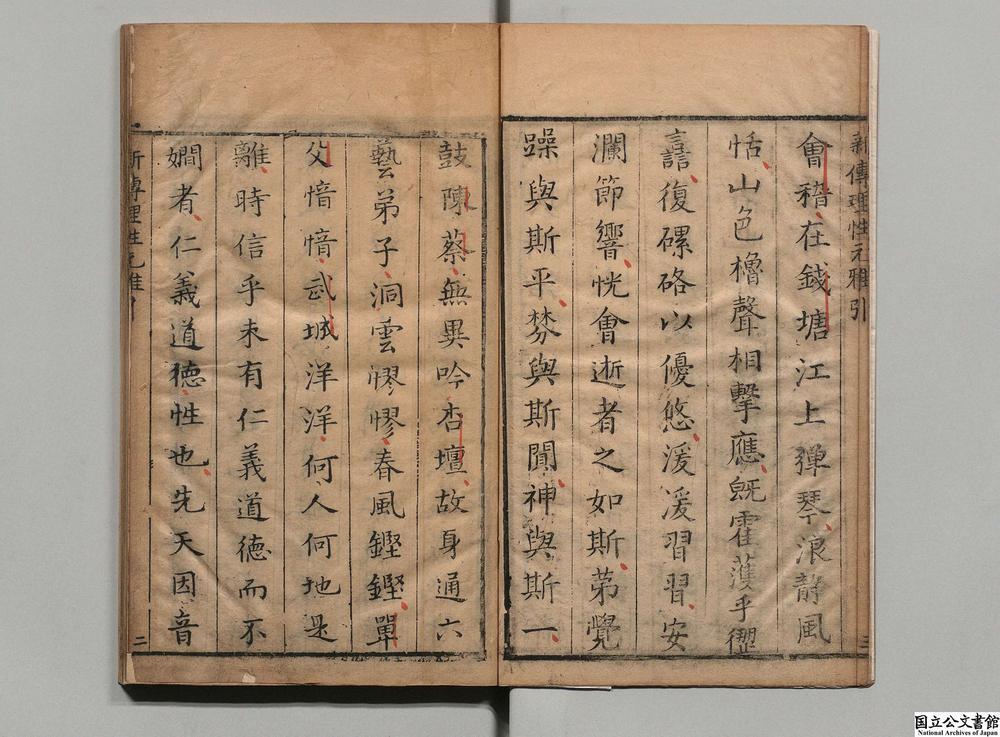 新傳理性元雅引
三
會稽在錢塘江上彈琴浪靜風
恬山色櫓聲相擊應旣霍蒦乎
譆復磥硌以優悠湲湲習習安
瀾節響恍會逝者之如斯苐覺
躁與斯平棼與斯聞神與斯一
鼓陳蔡無異吟杏壇故身通六
藝弟子洞雲憀憀春風鏗鏗單
父愔愔武城洋洋何人何地是
離時信乎未有仁義道德而不
嫺者仁義道德性也先天因音
新傳理性元雅引
二
国立公文書館
National Archives of Japan